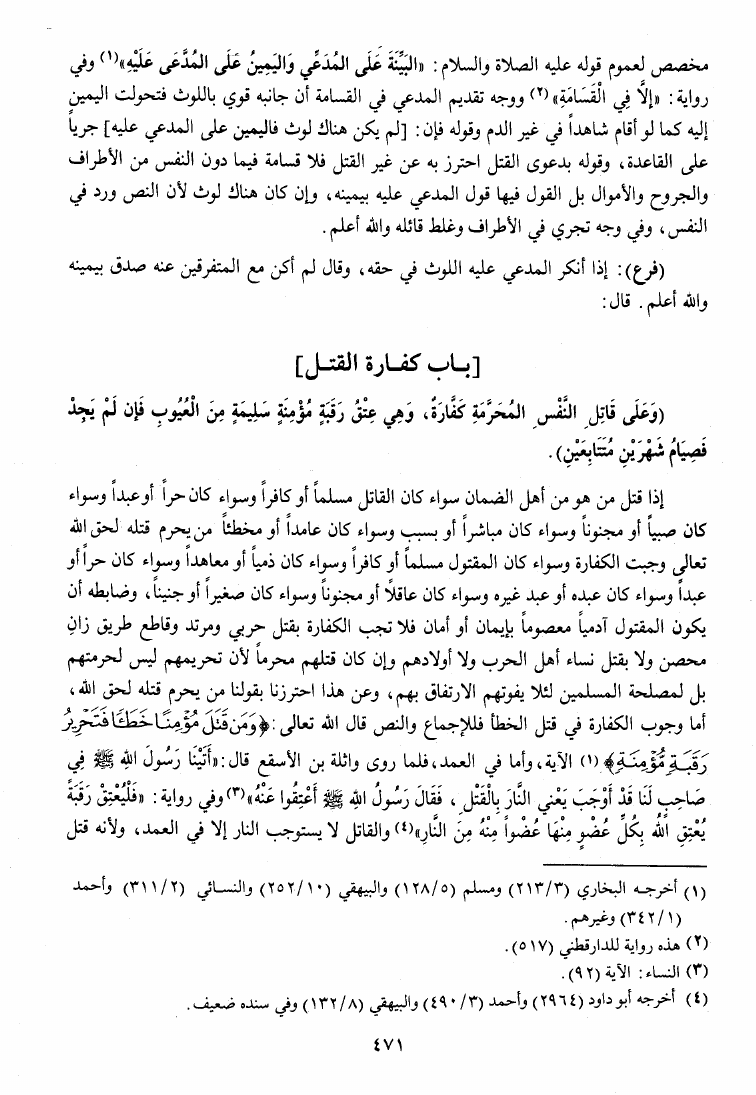 مخصص لعموم قوله عليه الصلاة والسلام: «البَيِّنَةَ عَلَى المُدَعِّي وَاليَمِينُ عَلَى المُدَّعَى عَلَيْهِ»(١) وفي
رواية: «إلَّا فِي الْقَسَامَةِ»(٢) ووجه تقديم المدعي في القسامة أن جانبه قوي باللوث فتحولت اليمين
إليه كما لو أقام شاهداً في غير الدم وقوله فإن: [لم يكن هناك لوث فاليمين على المدعي عليه] جرياً
على القاعدة، وقوله بدعوى القتل احترز به عن غير القتل فلا قسامة فيما دون النفس من الأطراف
والجروح والأموال بل القول فيها قول المدعي عليه بيمينه، وإن كان هناك لوث لأن النص ورد في
النفس، وفي وجه تجري في الأطراف وغلط قائله والله أعلم.
(فرع): إذا أنكر المدعي عليه اللوث في حقه، وقال لم أكن مع المتفرقين عنه صدق بيمينه
والله أعلم. قال:
[بـاب كفـارة القتـل]
(وَعَلَى قَاتِلِ النَّفْسِ المُحَرَّمَةِ كَفَّارَةٌ، وَهِي عِتْقُ رَقَبَةٍ مُؤْمِنَةٍ سَلِيمَةٍ مِنَ الْعُيُوبِ فَإِن لَمْ يَجِدْ
فَصِيَامُ شَهْرَيْنِ مُتَتَابِعَيْنِ).
إذا قتل من هو من أهل الضمان سواء كان القاتل مسلماً أو كافراً وسواء كان حراً أو عبداً وسواء
كان صبياً أو مجنوناً وسواء كان مباشراً أو بسبب وسواء كان عامداً أو مخطئاً من يحرم قتله لحق الله
تعالى وجبت الكفارة وسواء كان المقتول مسلماً أو كافراً وسواء كان ذمياً أو معاهداً وسواء كان حراً أو
عبداً وسواء كان عبده أو عبد غيره وسواء كان عاقلاً أو مجنوناً وسواء كان صغيراً أو جنيناً، وضابطه أن
يكون المقتول آدمياً معصوماً بإيمان أو أمان فلا تجب الكفارة بقتل حربي ومرتد وقاطع طريق زانٍ
محصن ولا بقتل نساء أهل الحرب ولا أولادهم وإن كان قتلهم محرماً لأن تحريمهم ليس لحرمتهم
بل لمصلحة المسلمين لئلا يفوتهم الارتفاق بهم، وعن هذا احترزنا بقولنا من يحرم قتله لحق الله،
أما وجوب الكفارة في قتل الخطأ فللإجماع والنص قال الله تعالى: ﴿وَمَن قَتَلَ مُؤْمِنًا خَطَـًٔا فَتَحْرِيرُ
رَقَبَةٍ مُّؤْمِنَةٍ﴾(١) الآية، وأما في العمد، فلما روى واثلة بن الأسقع قال: «أَتَيْنَا رَسُولَ اللهِ ﷺ فِي
صَاحِبٍ لَنَا قَدْ أَوْجَبَ يَعْنِي النَّارَ بِالْقَتْلِ، فَقَالَ رَسُولُ اللهِ ﷺ أَعْتِقُوا عَنْهُ»(٣) وفي رواية: «فَلْيُعْتِقْ رَقَبَةً
يُعْتِقِ اللهُ بِكُلِّ عُضْوٍ مِنْهَا عُضْواً مِنْهُ مِنَ النَّارِ»(٤) والقاتل لا يستوجب النار إلا في العمد، ولأنه قتل
(١) أخرجه البخاري (٢١٣/٣) ومسلم (١٢٨/٥) والبيهقي (٢٥٢/١٠) والنسائي (٣١١/٢) وأحمد
(٣٤٢/١) وغيرهم.
(٢) هذه رواية للدارقطني (٥١٧).
(٣) النساء: الآية (٩٢).
(٤) أخرجه أبو داود (٢٩٦٤) وأحمد (٤٩٠/٣) والبيهقي (١٣٢/٨) وفي سنده ضعيف.
٤٧١